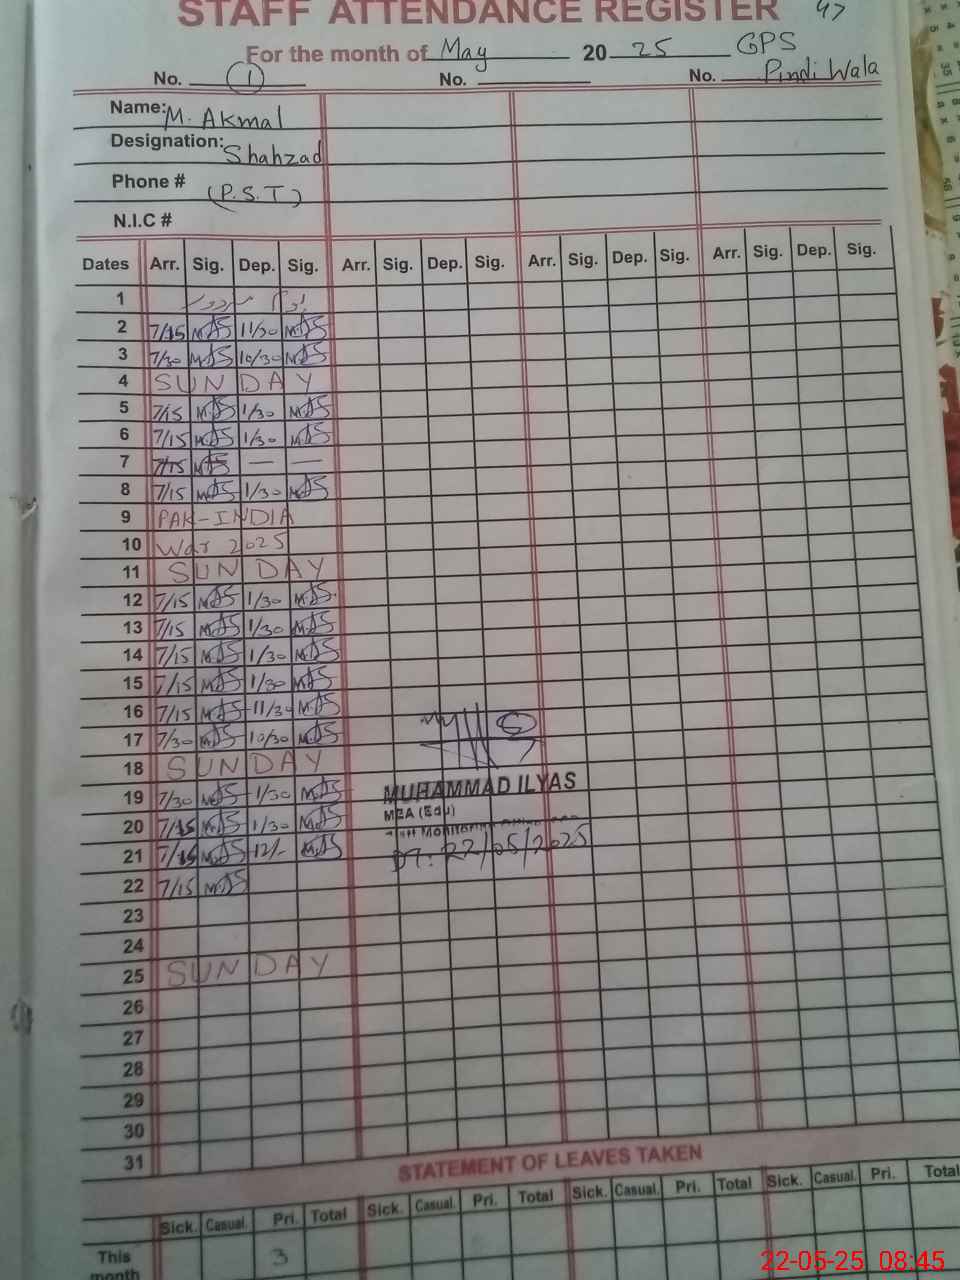 STAFF ATTENDANCE REGISTER 47
For the month of May 2025 GPS
No. 1 No. No. Pindi Wala
Name: M. Akmal
Designation: Shahzad
Phone # (P.S.T)
N.I.C #
Dates Arr. Sig. Dep. Sig. Arr. Sig. Dep. Sig. Arr. Sig. Dep. Sig. Arr. Sig. Dep. Sig.
1
2 7/15 MAS 11/30 MAS
3 7/30 MAS 10/30 MAS
4 SUNDAY
5 7/15 MAS 1/30 MAS
6 7/15 MAS 1/30 MAS
7 7/15 MAS — —
8 7/15 MAS 1/30 MAS
9 PAK-INDIA
10 War 2025
11 SUNDAY
12 7/15 MAS 1/30 MAS
13 7/15 MAS 1/30 MAS
14 7/15 MAS 1/30 MAS
15 7/15 MAS 1/30 MAS
16 7/15 MAS 11/30 MAS
17 7/30 MAS 10/30 MAS
18 SUNDAY
19 7/30 MAS 1/30 MAS
20 7/15 MAS 1/30 MAS
21 7/15 MAS 12/- MAS
22 7/15 MAS
23
24
25 SUNDAY
26
27
28
29
30
31
MUHAMMAD ILYAS
MEA (Edu)
DT: 22/05/2025
STATEMENT OF LEAVES TAKEN
Sick. Casual. Pri. Total Sick. Casual. Pri. Total Sick. Casual. Pri. Total Sick. Casual. Pri. Total
This month 3
22-05-25 08:45